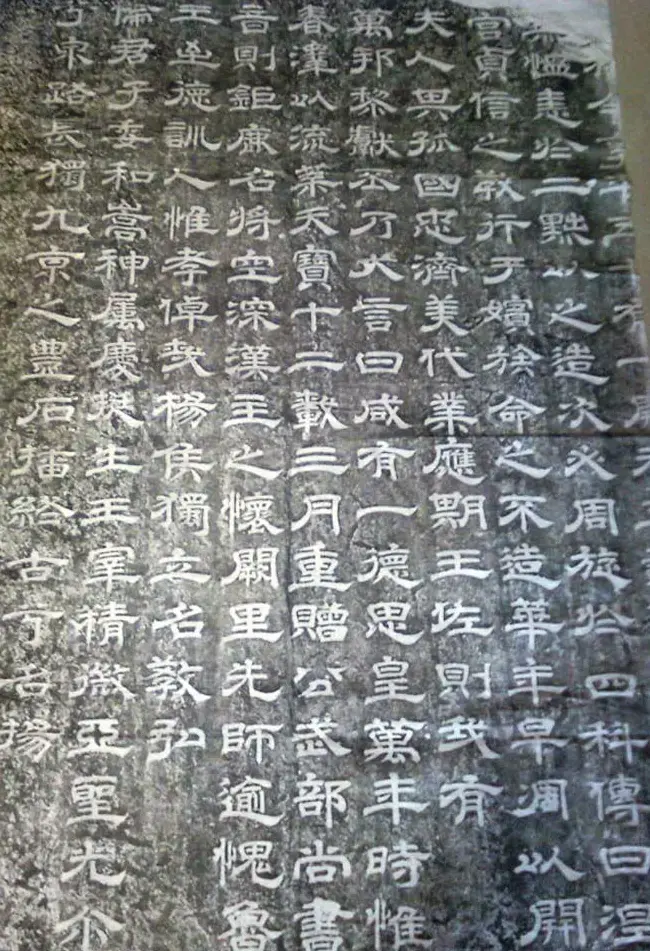 年五十有一
無愠憲於二黙以之造次必周旋於四科傳曰涅
官貞信之教行于嬪族命之不造華年早凋以開
夫人異孤國忠濟美代業應期王佐則我有
萬邦黎獻丕乃大言曰咸有一德思皇萬年時惟
春澤以流葉天寶十二載三月重贈公武部尚書
音則鉅鹿名將空深漢主之懷闕里先師逾愧魯
王之德訓人惟孝倬哉楊侯獨立名教弘
儒君子委和嵩神属慶挺生王宰精微亞聖光尒
泉路長獨九京之豊石播終古可名揚